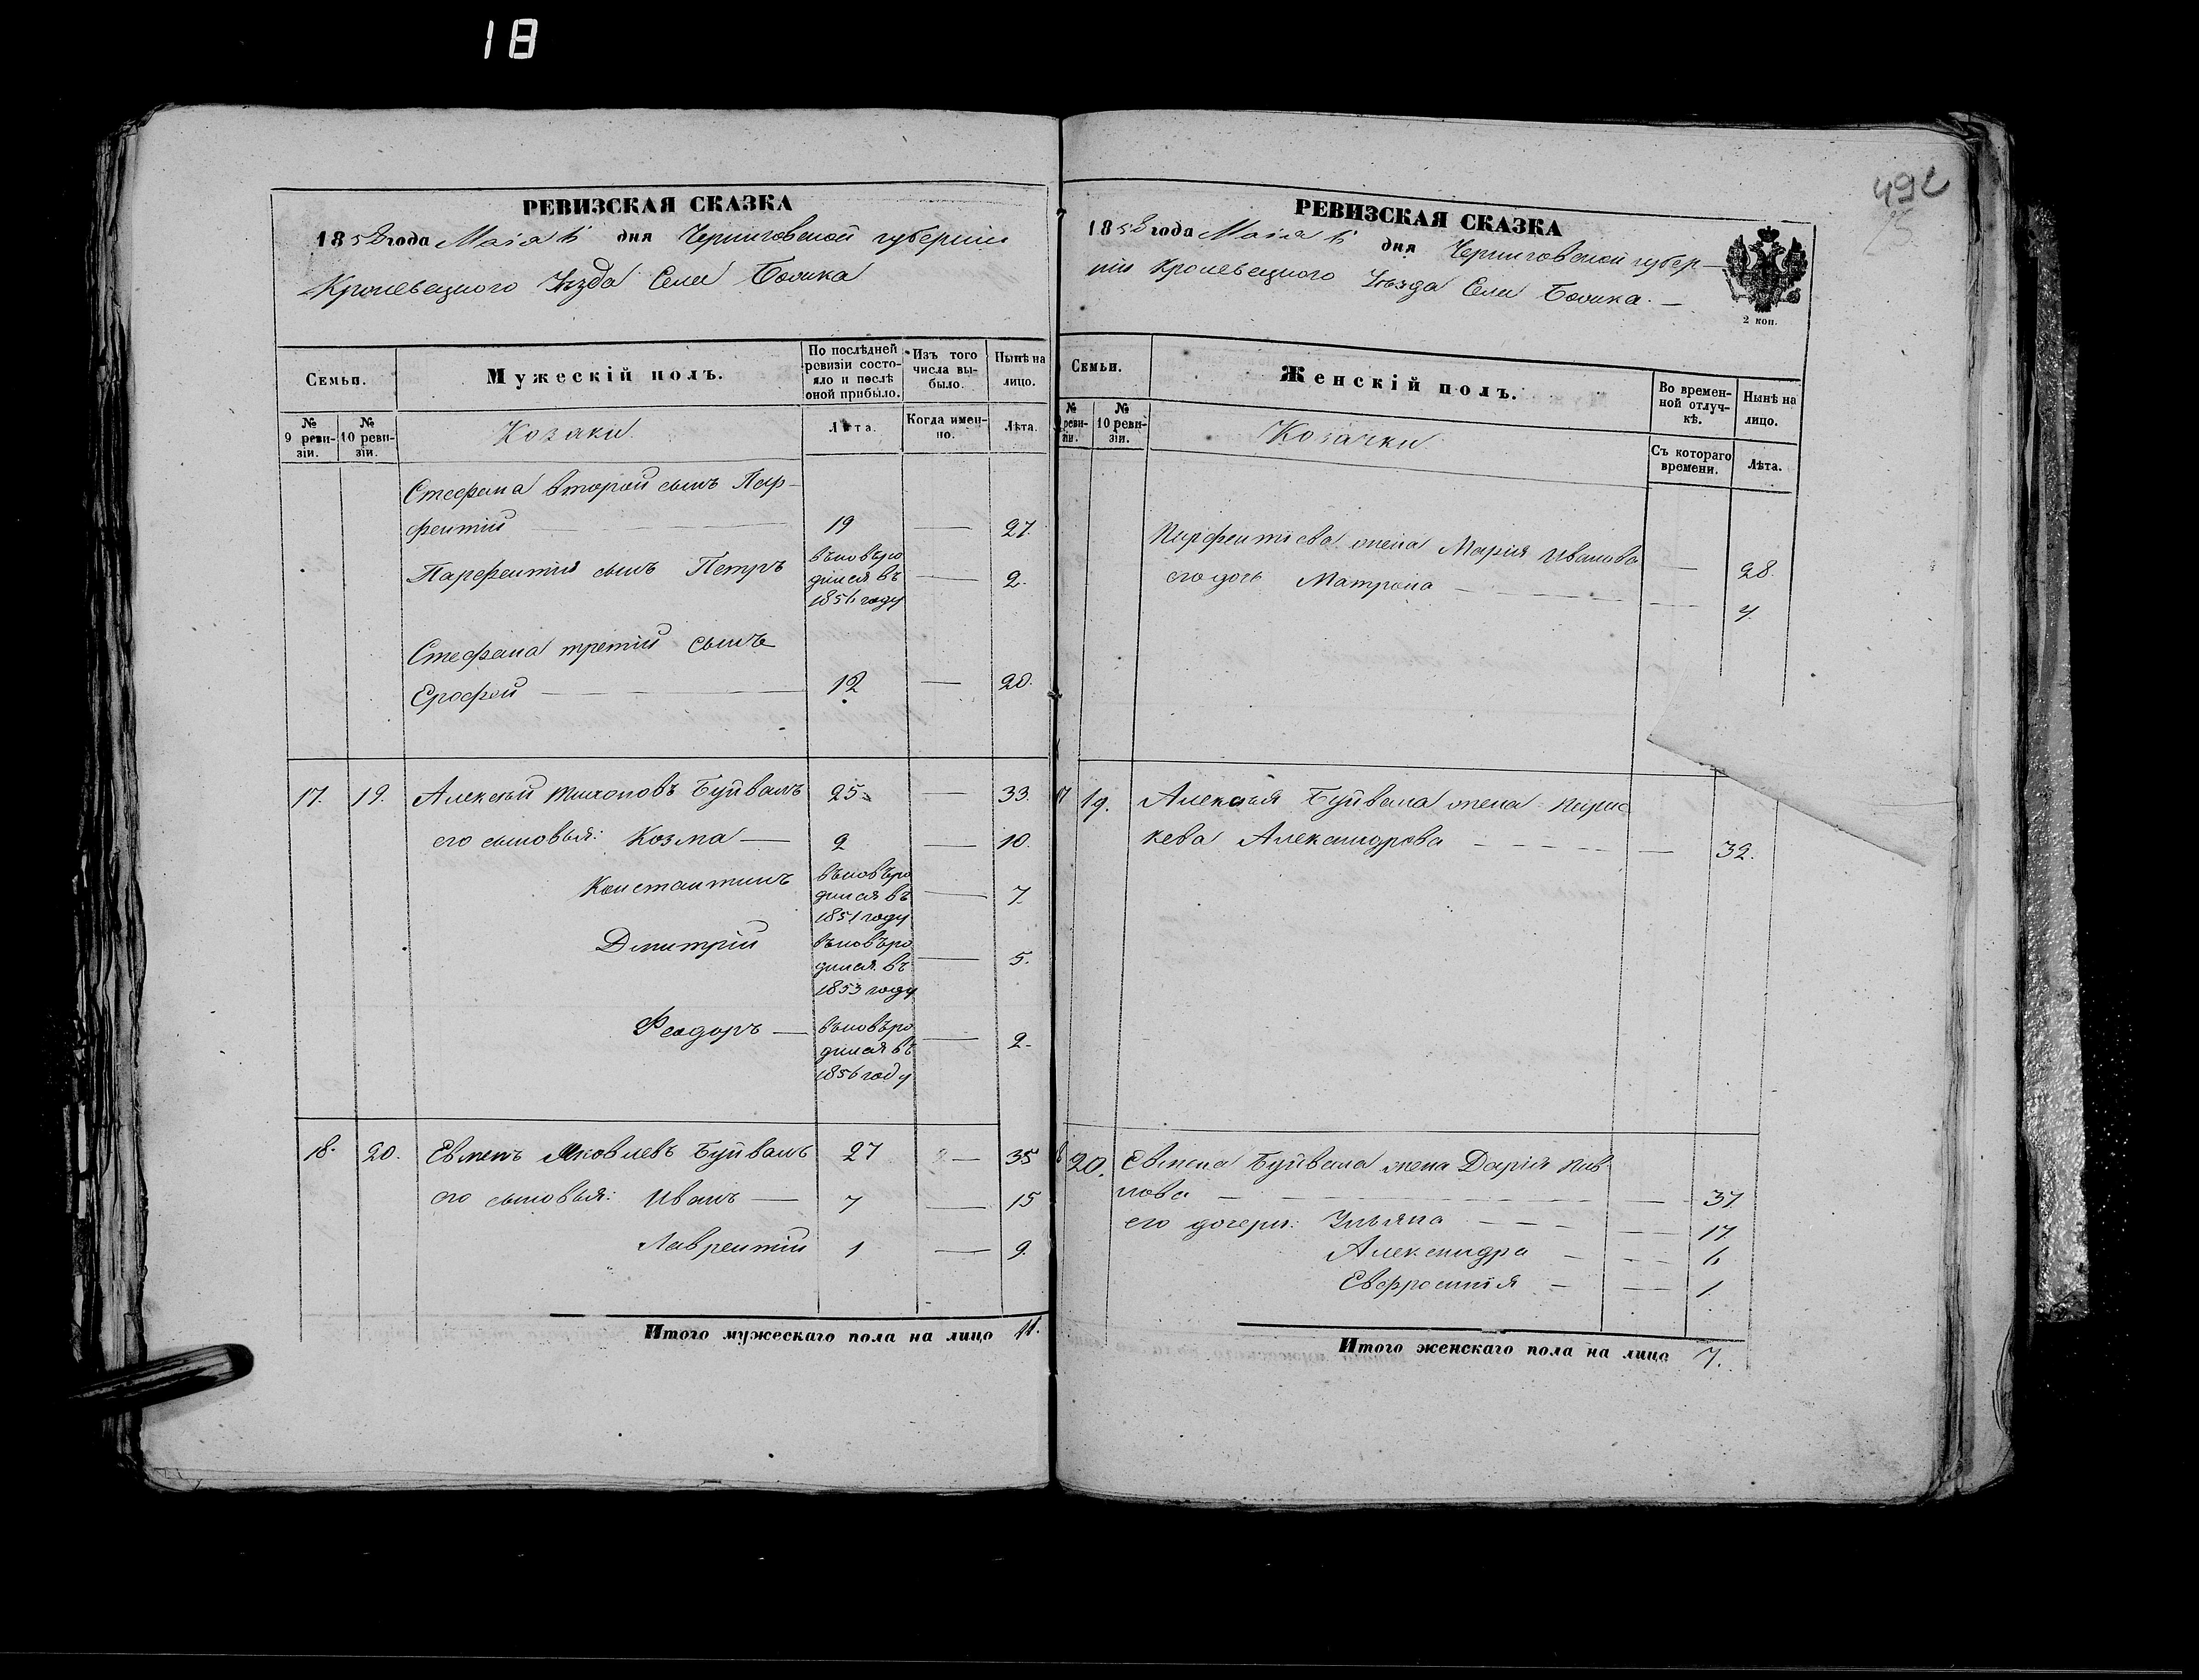 18
492
РЕВИЗСКАЯ СКАЗКА
1858 года Маія 6 дня Черниговской губерніи
Кролевецкого Уѣзда Села
Семьи.
Мужескій полъ.
По послѣдней ревизіи состояло и послѣ оной прибыло.
Изъ того числа выбыло.
Нынѣ на лицо.
№ 9 ревизіи.
№ 10 ревизіи.
Козаки
Лѣта.
Когда именно.
Лѣта.
Стефана второй сынъ Пар-
фентій — 19 — 27.
Парфентія сынъ Петръ вновь ро
дился въ — 2.
1856 году
Стефана третій сынъ
Ерофей — 12 — 20.
17. 19. Алексѣй Тихоновъ Буйвалъ 25 — 33.
его сыновья: Козма — 2 — 10.
Константинъ вновь ро
дился въ — 7.
1851 году
Дмитрій вновь ро
дился въ — 5.
1853 году
Феодоръ — вновь ро
дился въ — 2.
1856 году
18. 20. Евменъ Яковлевъ Буйвалъ 27 — 35
его сыновья: Иванъ — 7 — 15
Лаврентій 1 — 9.
Итого мужескаго пола на лицо 11.
РЕВИЗСКАЯ СКАЗКА
1858 года Маія 6 дня Черниговской губер-
ніи Кролевецкого Уѣзда Села
2 коп.
Семьи.
Женскій полъ.
Во временной отлучкѣ.
Нынѣ на лицо.
№ реви-
зіи.
№ 10 ревизіи.
Козачки
Съ котораго времени.
Лѣта.
Парфентіева жена Марія Иванова — 28.
его дочь Матрона — 4.
19. Алексѣя Буйвала жена Парас
кева Александрова — 32.
20. Евмена Буйвала жена Дарія Пав-
лова — 37.
его дочери: Ульяна — 17.
Александра — 6
Евфросинія — 1.
Итого женскаго пола на лицо 7.